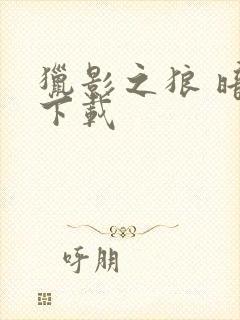 獵影之狼 暗
下載
呼朋